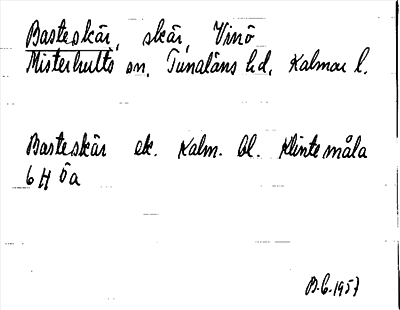 Basteskär, skär, Vinö
Misterhults sn. Tunaläns hd. Kalmar l.
Basteskär ek. Kalm. bl. Klintemåla
6 H öa
B.G. 1957